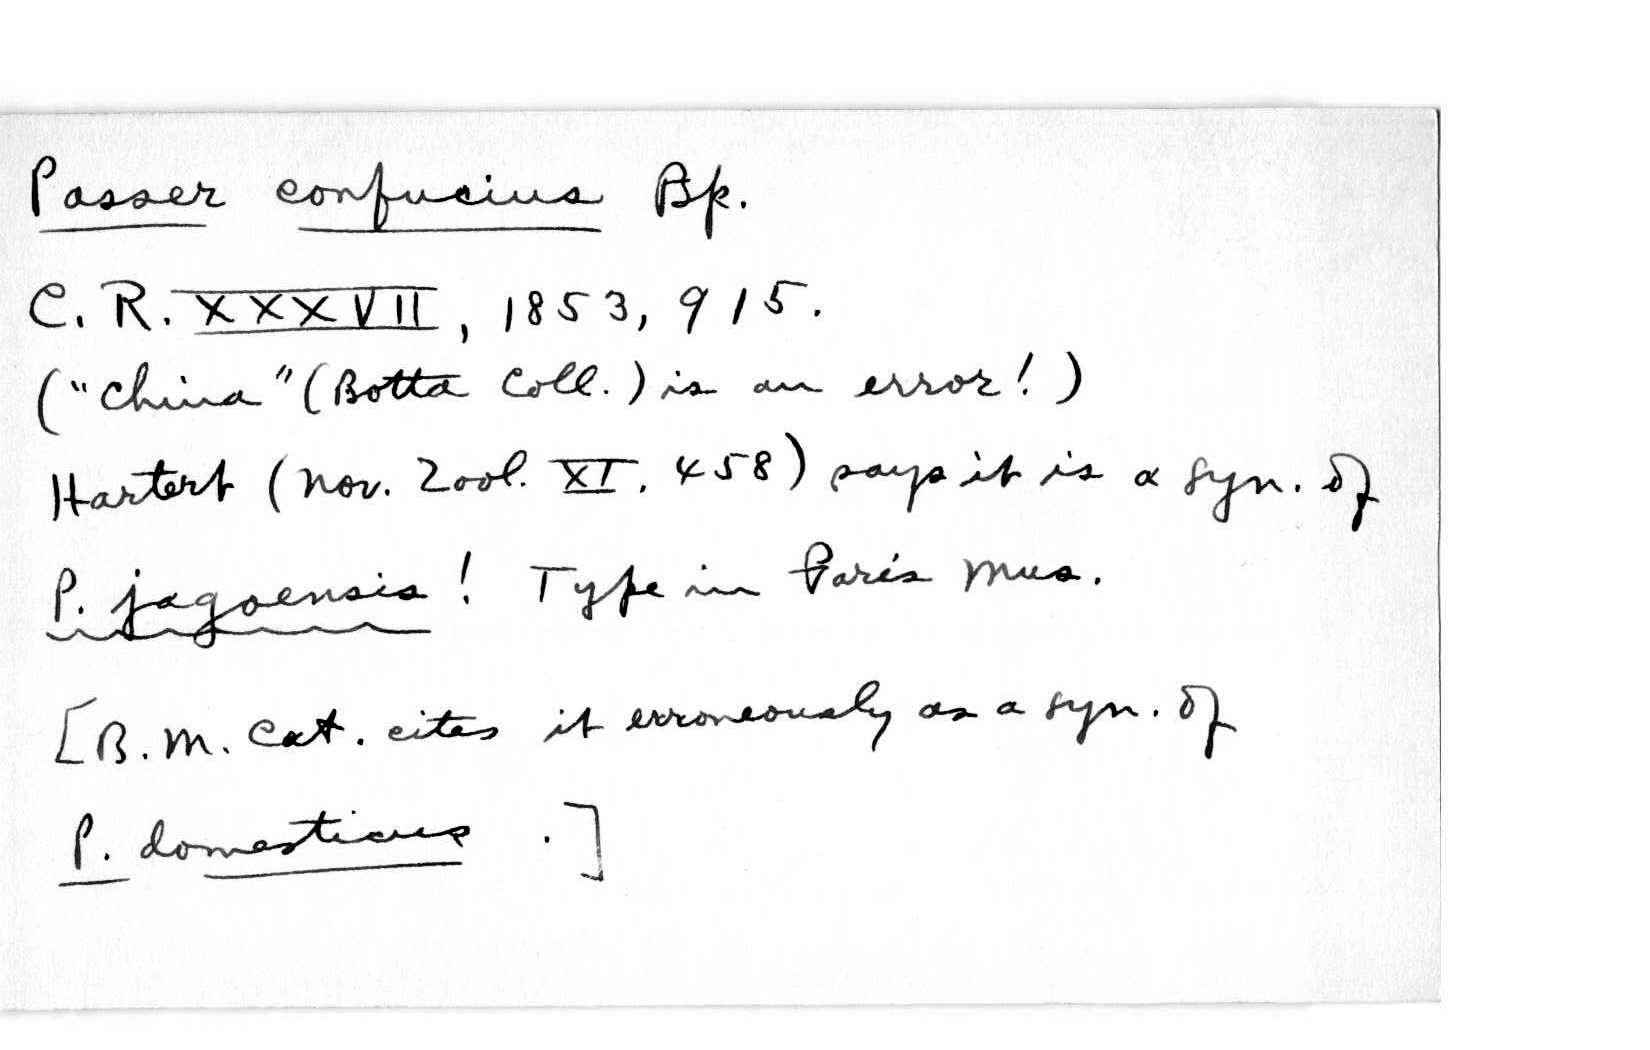 Passer confucius Bp.
C. R. XXXVII, 1853, 915.
("China" (Botta Coll.) is an error!)
Hartert (Nov. Zool. XI. 458) says it is a syn. of
P. jagoensis! Type in Paris Mus.
[B. M. Cat. cites it erroneously as a syn. of
P. domesticus .]